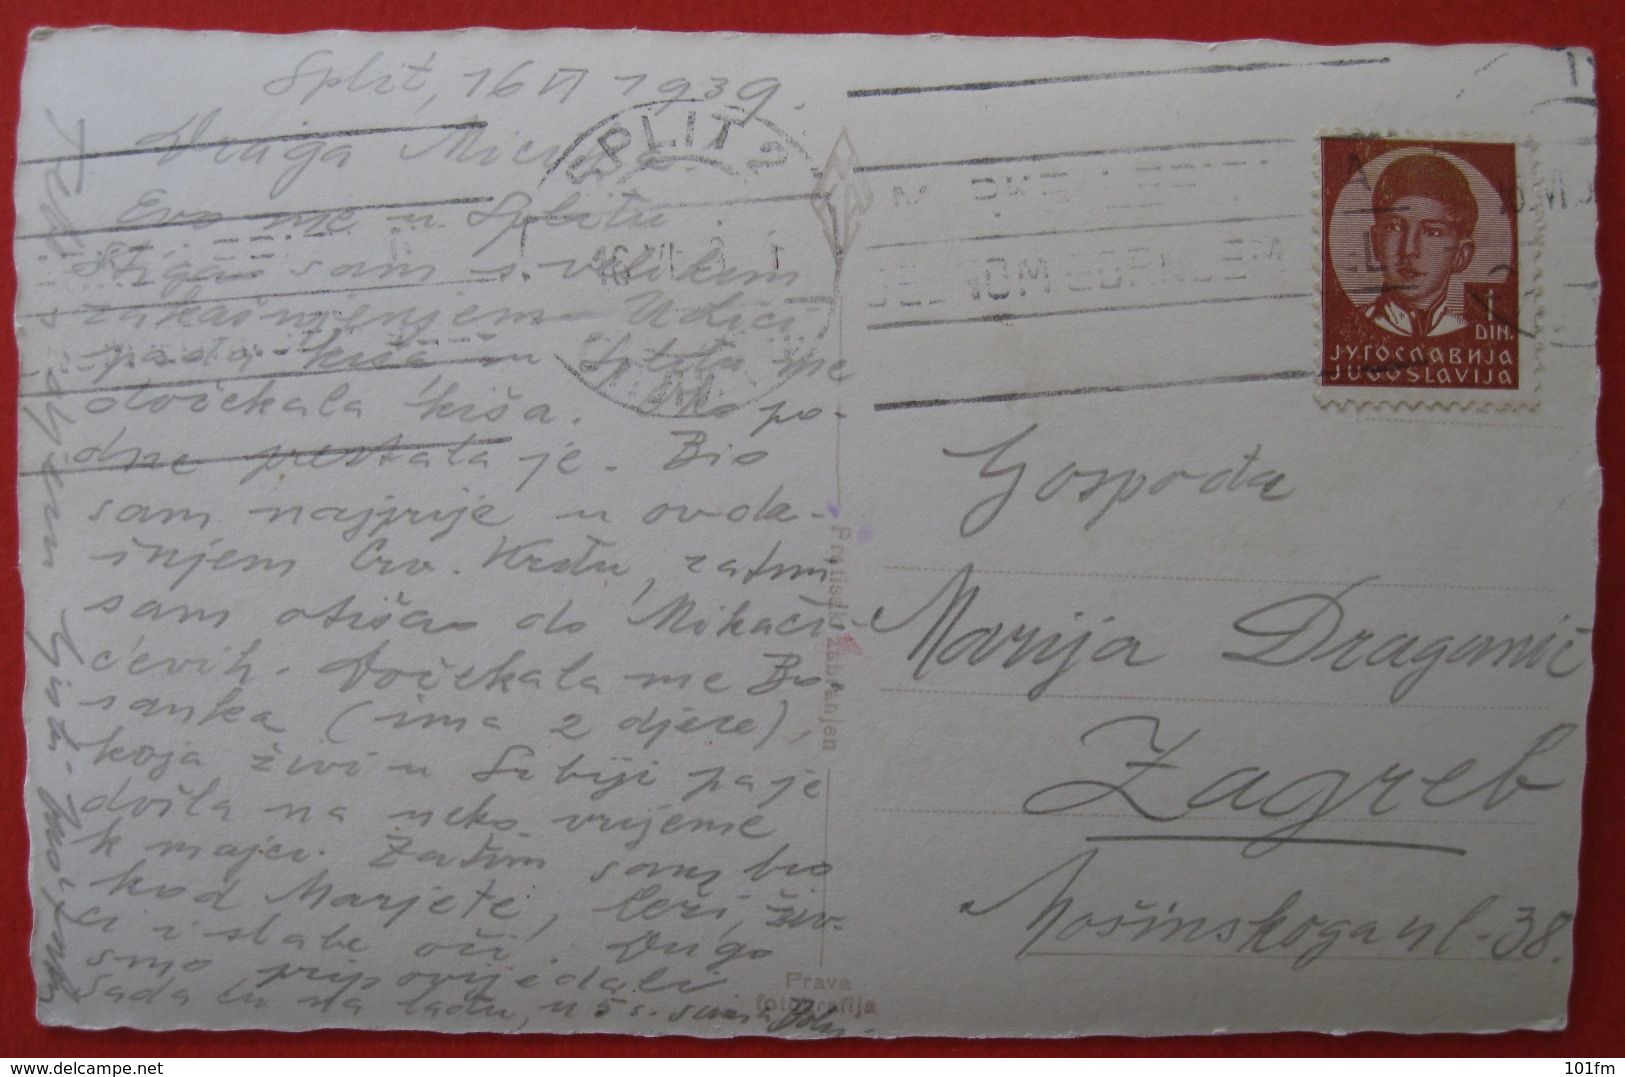 Split, 16 VI 1939.
Draga Micika.
Evo me u Splitu
Stigao sam s velikim
zakašnjenjem. U Lici
pada kiša u Splitu me
dočekala kiša. Oko po-
dne prestala je. Bio
sam najprije u ovda-
šnjem Crv. Krstu, zatim
sam otišao do Mikači-
ćevih. Dočekala me Bo-
sanka (ima 2 djece),
koja živi u Srbiji pa je
došla na neko vrijeme
k majci. Zatim sam bio
kod Marjete, leži, živ-
ci i slabe oči. Dugo
smo pripovijedali
Sada ću na lađu, u 5 s.
SPLIT 2
DIN.
ЈУГОСЛАВИЈА
JUGOSLAVIJA
Pretisak zabranjen
Prava
fotografija
Gospođa
Marija Draganić
Zagreb
Mošinskoga ul. 38.
101fm
© www.delcampe.net